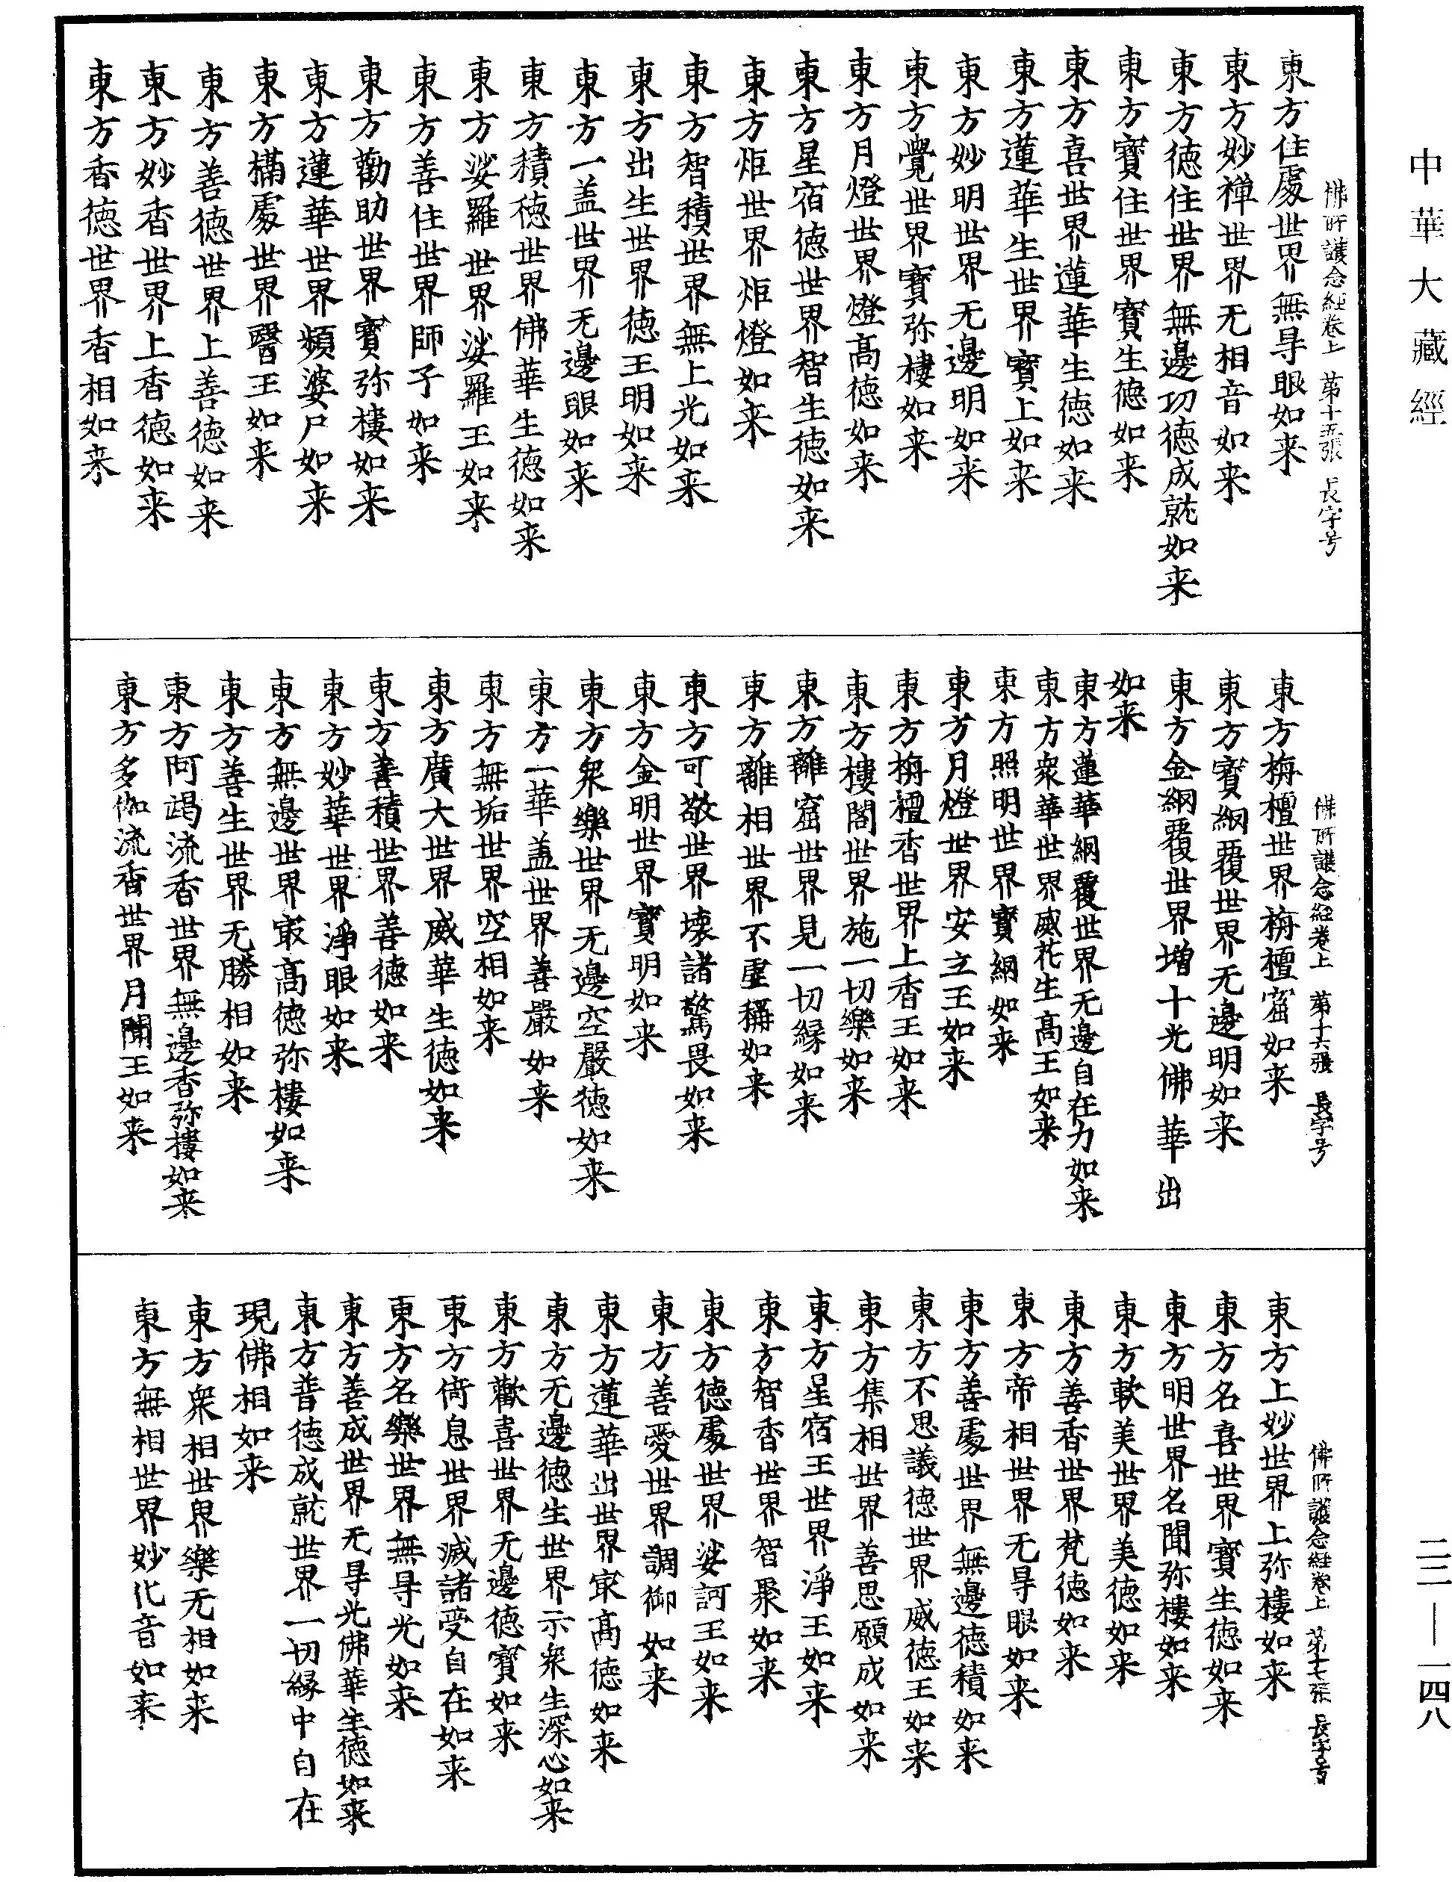 中華大藏經
佛所護念經卷上 第十五張 長字号
東方住處世界無㝵眼如来
東方妙禅世界无相音如来
東方德住世界無邊功德成就如来
東方寳住世界寳生德如来
東方喜世界蓮華生德如来
東方蓮華生世界寳上如来
東方妙明世界无邊明如来
東方覺世界寳弥樓如来
東方月燈世界燈髙德如来
東方星宿德世界智生德如来
東方炬世界炬燈如来
東方智積世界無上光如来
東方出生世界德王明如来
東方一盖世界无邊眼如来
東方積德世界佛華生德如来
東方娑羅世界娑羅王如来
東方善住世界師子如来
東方勸助世界寳弥樓如来
東方蓮華世界頻婆尸如来
東方槗處世界醫王如来
東方善德世界上善德如来
東方妙香世界上香德如来
東方香德世界香相如来
佛所護念經卷上 第十六張 長字号
東方栴檀世界栴檀窟如来
東方寳網覆世界无邊明如来
東方金網覆世界增十光佛華出
如来
東方蓮華網覆世界无邊自在力如来
東方衆華世界威花生髙王如来
東方照明世界寳網如来
東方月燈世界安立王如来
東方栴檀香世界上香王如来
東方樓閣世界施一切樂如来
東方離窟世界見一切緣如来
東方離相世界不虛稱如来
東方可敬世界壊諸驚畏如来
東方金明世界寳明如来
東方衆樂世界无邊空嚴德如来
東方一華盖世界善嚴如来
東方無垢世界空相如来
東方廣大世界威華生德如来
東方善積世界善德如来
東方妙華世界淨眼如来
東方無邊世界㝡髙德弥樓如来
東方善生世界无勝相如来
東方阿竭流香世界無邊香弥樓如来
東方多伽流香世界月聞王如来
佛所護念經卷上 第十七張 長字号
東方上妙世界上弥樓如来
東方名喜世界寳生德如来
東方明世界名聞弥樓如来
東方軟美世界美德如来
東方善香世界梵德如来
東方帝相世界无㝵眼如来
東方善處世界無邊德積如来
東方不思議德世界威德王如来
東方集相世界善思願成如来
東方星宿王世界淨王如来
東方智香世界智聚如来
東方德處世界娑訶王如来
東方善愛世界調御如来
東方蓮華出世界㝡髙德如来
東方无邊德生世界示衆生深心如来
東方歡喜世界无邊德寳如来
東方倚息世界滅諸受自在如来
東方名樂世界無㝵光如来
東方善成世界无㝵光佛華生德如来
東方普德成就世界一切緣中自在
現佛相如来
東方衆相世界樂无相如来
東方無相世界妙化音如来
二二—一四八